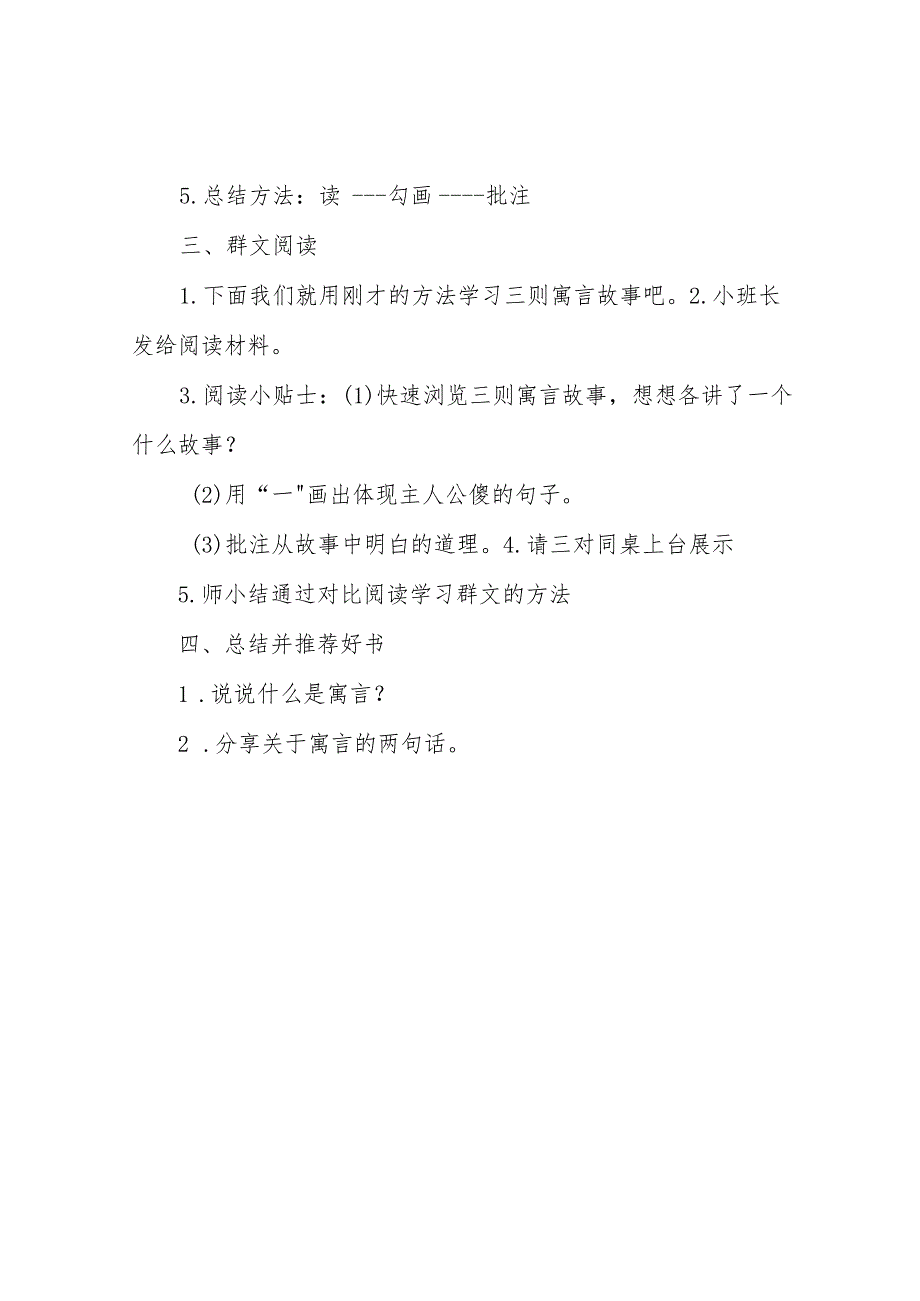 5.总结方法：读 ---勾画----批注
三、群文阅读
1.下面我们就用刚才的方法学习三则寓言故事吧。2.小班长
发给阅读材料。
3.阅读小贴士：(1)快速浏览三则寓言故事，想想各讲了一个
什么故事？
(2)用“一"画出体现主人公傻的句子。
(3)批注从故事中明白的道理。4.请三对同桌上台展示
5.师小结通过对比阅读学习群文的方法
四、总结并推荐好书
1 .说说什么是寓言？
2 .分享关于寓言的两句话。